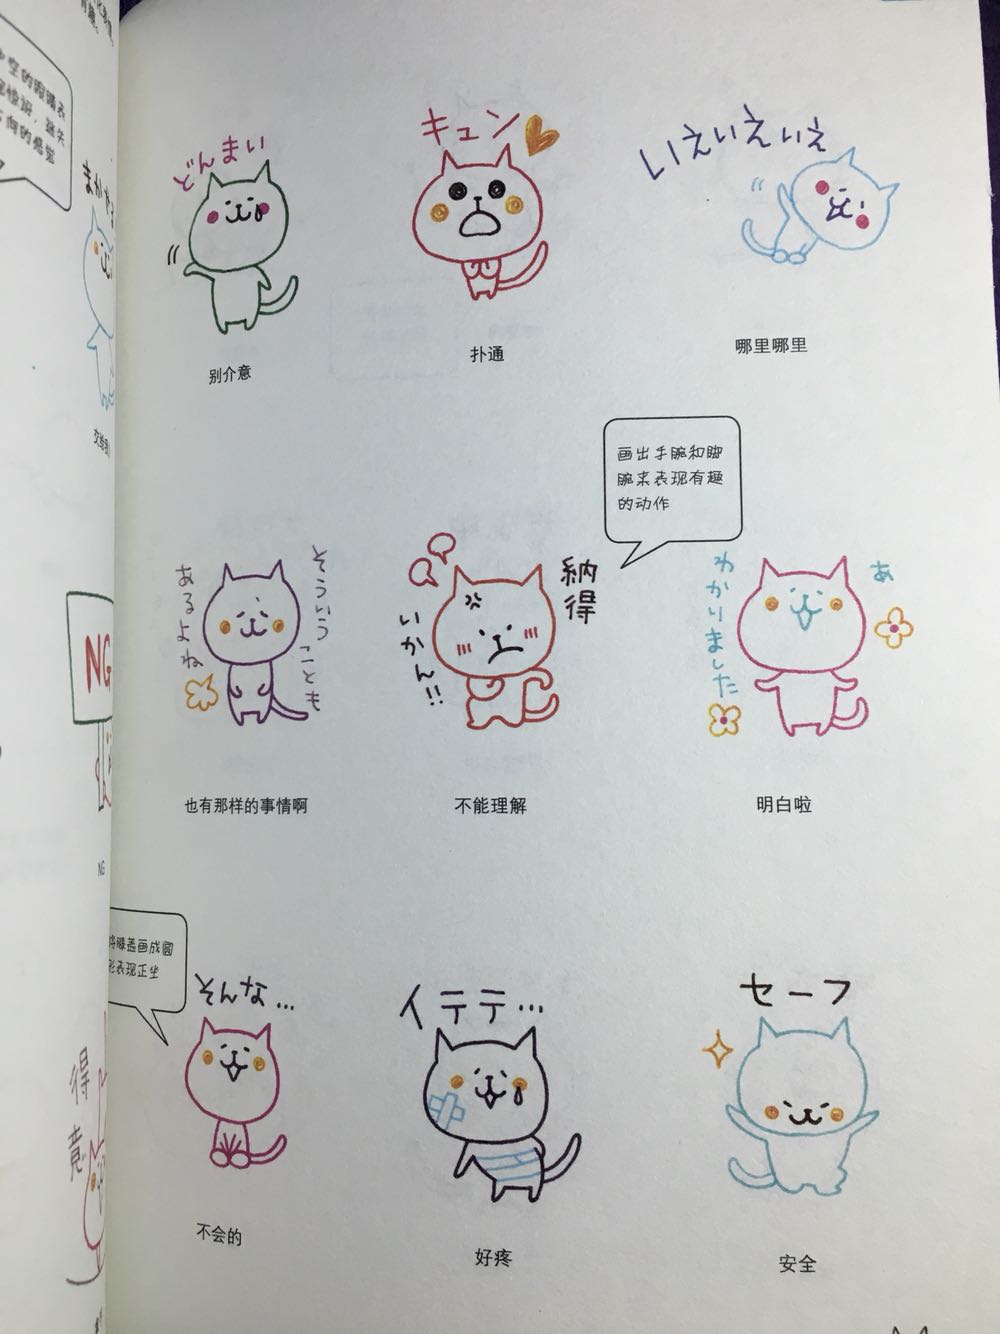 まかせ
NG
NG
得
意
どんまい
别介意
キュン
扑通
いえいえいえ
哪里哪里
そういう
ことも
あるよね
也有那样的事情啊
納得
いかん!!
不能理解
画出手腕和脚
腕来表现有趣
的动作
あ
わかりました
明白啦
膝盖画成圆
表现正坐
そんな…
不会的
イテテ…
好疼
セーフ
安全